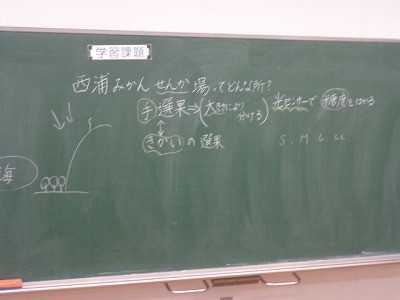 学習課題
西浦みかん せんか場ってどんな所?
手選果⇒(大きさにより分ける) 光センサーで 糖度をはかる
↕
きかいの選果
S. M. L. LL
海